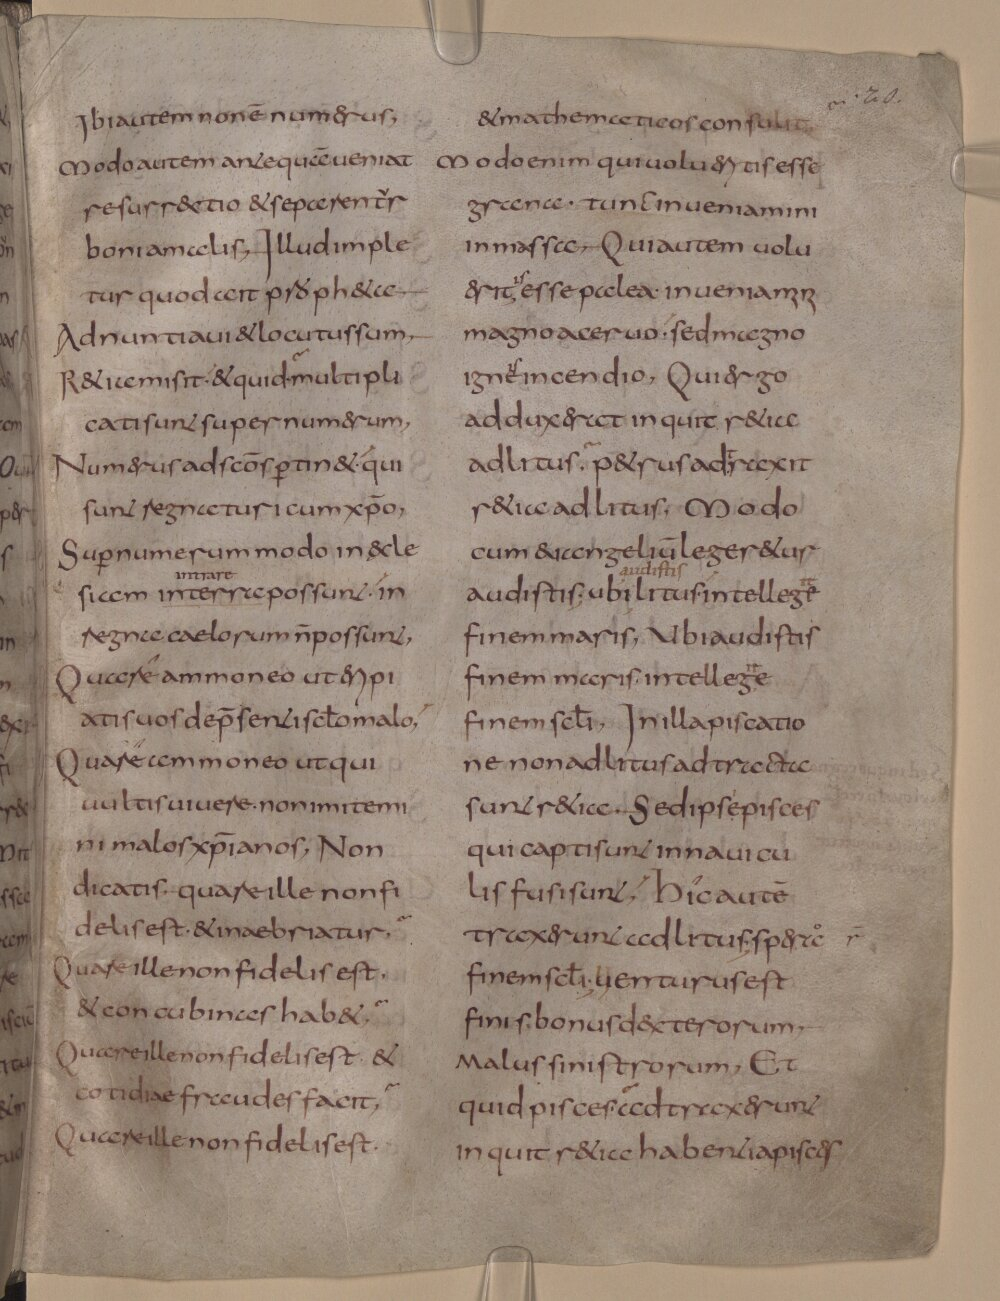 Ibi autem non ē numerus,
Modo autem antequā ueniat
resurrectio & separent̄r
boni a malis, Illud imple
tur quod ait prophetia
Adnuntiaui & locutus sum,
R&ia misit· & quid· multipli
cati sunt super numerum,
Numerus ad scōs p̱tin&· qui
sunt regnaturi cum xp̄o,
Sup numerum modo in aecle
intrare
siam interra possunt· in
regna caelorum n̄ possunt,
Quare ammoneo ut cupi
atis uos de p̄senti sc̄lo malo,
Quare ammoneo ut qui
uultis uiuere· non imitemi
ni malos xp̄ianos, Non
dicatis· quare ille non fi
delis est· & inaebriatur,
Quare ille non fidelis est·
& concubinas hab&,
Quare ille non fidelis est· &
cotidiae fraudes facit,
Quare ille non fidelis est·
20.
& mathematicos consulit,
Modo enim qui uolueritis esse
grana· tunc inueniamini
in massa, Qui autem uolu
eritis esse palea· inueniamini
magno aceruo· sed magno
igne incendio, Qui ergo
adduxerat inquit r&ia
ad litus, p&rus adtraxit
r&ia ad litus, Modo
cum euangeliū leger&ur
audistis
audistis· ubi litus· intellegite
finem maris, Ubi audistis
finem maris· intellegite
finem sc̄li, In illa piscatio
ne non ad litus adtracta
sunt r&ia· Sed ipse pisces
qui capti sunt in nauicu
lis fusi sunt, Hic autē
traxerunt ad litus· sperato r̄
finem sc̄li· uenturus est
finis· bonus dexterorum,
Malus sinistrorum, Et
quid pisces· adtraxerunt
inquit r&ia habentia pisces